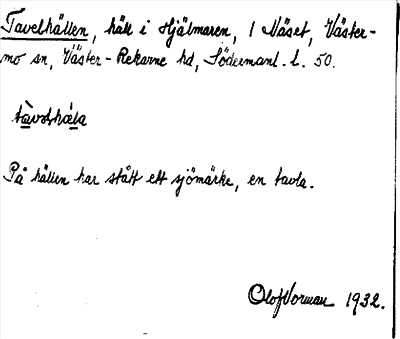 Tavelhällen, häll i Hjälmaren, 1 Näset, Väster-
mo sn, Väster-Rekarne hd, Södermanl. l. 50.
På hällen har stått ett sjömärke, en tavla.
Olof Vorman 1932.